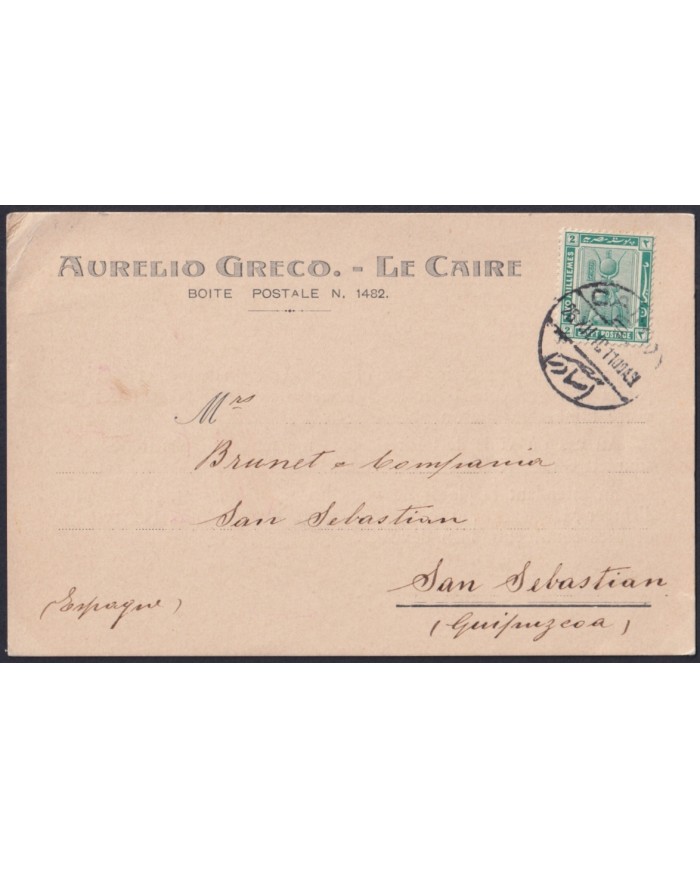 AURELIO GRECO. - LE CAIRE
BOITE POSTALE N. 1482.
2 ٢
MILLIEMES
2 POSTAGE ٢
Mrs
Brunet & Compania
San Sebastian
San Sebastian
(Espagne)
(Guipuzcoa)